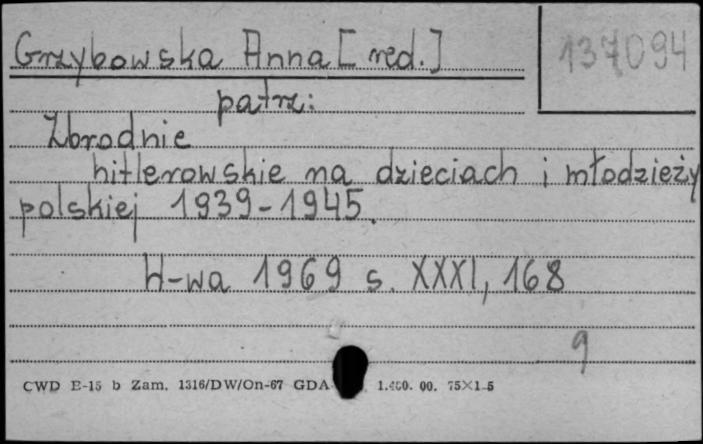 Grzybowska Anna [red.]
137094
patrz:
Zbrodnie
hitlerowskie na dzieciach i młodzieży
polskiej 1939-1945.
W-wa 1969 s. XXXI, 168
9
CWD E-15 b Zam. 1316/DW/On-67 GDA 00. 75X1